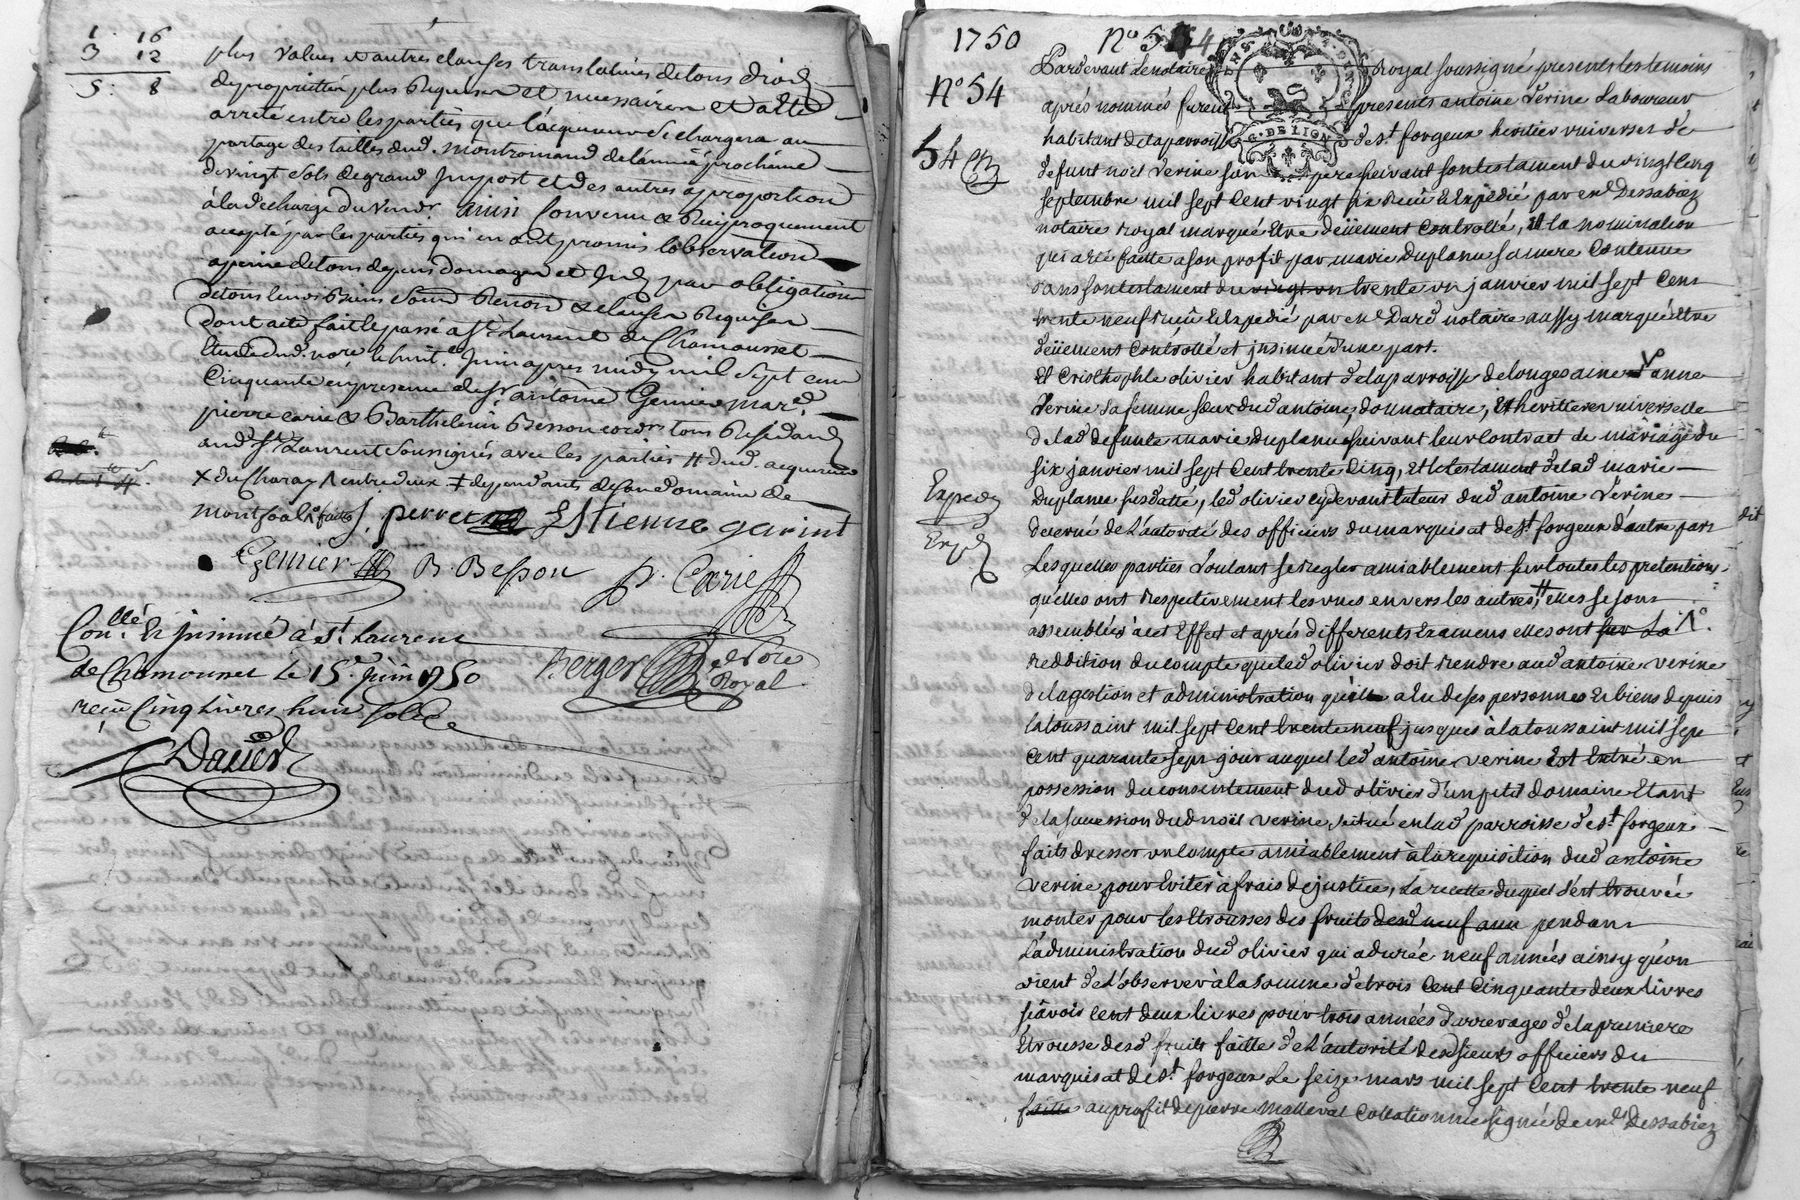 1. 16
3 12
5. 8
plus values et autres clauses translatives de tous droits
de propriettén plus Requises et necessaires et a été
arreté entre les parties que l'acquereur se chargera au
partage des tailles dud. montromand de l'année prochaine
de vingt sols de grand Import et des autres a proportion
à la décharge du vendr. ainsi convenu & Reciproquement
accepté par les parties qui en ont promis l'observation
a peine de tous depens domages et par obligation
de tous leurs Biens Renon & clauses Requises
dont acte fait et passé a St. Laurent de Chamousset
Etude dud. nore le huit juin apres midy mil sept cent
Cinquante en presence de Sr. antoine Gemier mard.
pierre carié & Barthelemi Besson cordrs tous Residants
aud. St Laurent soussignés avec les parties # dud. acquereur
X du Charay Λ entre deux ‡ dependants de son domaine de
montfoal faits J. perret Estienne garint
Gemier B. Besson P. Carie
Conllé. Et jnsinué à St. Laurent
de Chamousset le 15e. juin 1750
reçu Cinq Livres huit sols
Berger Nore Royal
Dauied
1750 No 54
No 54
54
G. DE LION
Pardevant Le notaire Royal soussigné presents les temoins
aprés nommés furent presents antoine Verine Laboureur
habitant de la parroisse de St. forgeux heritier universel de
defunt noel Verine son pere suivant son testament du vingt cinq
septembre mil sept Cent vingt six reçû Et Expedié par me. Dessabiez
notaire royal marqué Etre deüement Controllé, Et la nomination
qui a été faitte a son profit par marie Duplanu sa mere Contenue
dans son testament du vingt un trente un janvier mil sept Cent
trente neuf reçû Et Expedié par me. Dard notaire aussy marqué Etre
deüement Controllé et jnsinué d'une part.
Et Cristhophle olivier habitant de la parroisse de Longesaine Vo anne
Verine sa femme sœur dud antoine, donnataire, Et heritiere universelle
de lad defunte marie Duplanu suivant leur Contract de mariage du
six janvier mil sept Cent trente Cinq, Et le testament de lad marie
Duplanu susdatté, led olivier cy devant tuteur dud antoine Verine
decerné de L'autorité des officiers du marquisat de St. forgeux d'autre part
Expedié
Exp.
Lesquelles parties voulant se regler amiablement sur toutes les pretentions
qu'elles ont respectivement les unes envers les autres, # elles se sont
assemblées à cet Effect et aprés differents Examens elles ont sur La Λo.
reddition du compte que led olivier doit rendre aud antoine verine
de la gestion et administration qu'il a eu de ses personnes Et biens depuis
la toussaint mil sept Cent trente neuf jusques à la toussaint mil sept
Cent quarante sept jour auquel led antoine verine Est Entré en
possession du consentement dud olivier d'un petit domaine Etant
de la succession dud noël verine, scitué en lad parroisse de St. forgeux
faits dresser un Compte amiablement à la requisition dud antoine
verine pour Eviter à frais de justice, La recette duquel s'est trouvée
monter pour les Etrousses des fruits desd neuf ans pendant
L'administration dud olivier qui a durée neuf années ainsy qu'on
vient de L'observer à la somme de trois Cent Cinquante deux livres
sçavoir Cent deux livres pour trois années d'arrerages de la premiere
Etrousse desd fruits faitte de L'autorité desd sieurs officiers du
marquisat de St. forgeux Le seize mars mil sept Cent trente neuf
faitte au profit de pierre Malleval Collationnée signée de me. Dessabiez